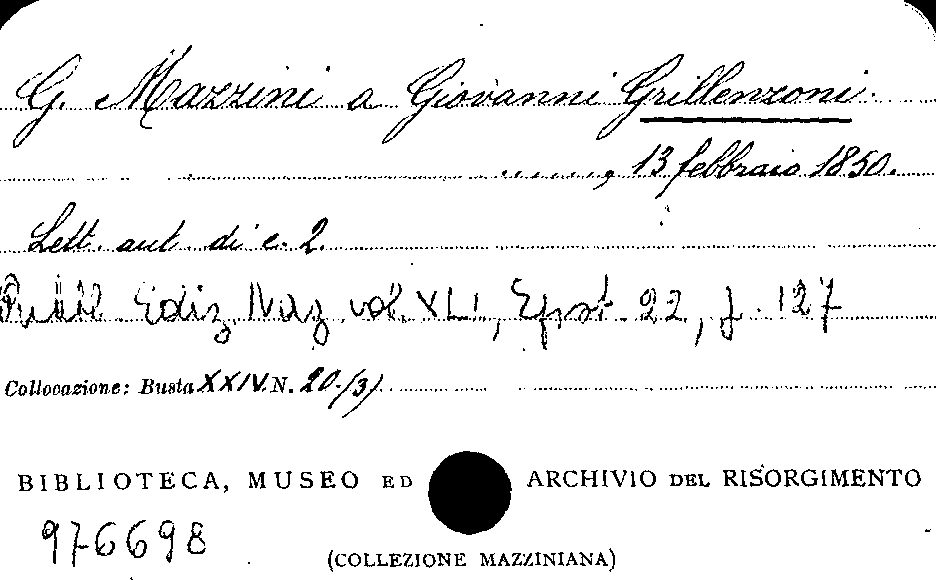 G. Mazzini a Giovanni Grillenzoni.
......, 13 febbraio 1850.
Lett. aut. di c. 2.
Pubbl. Ediz. Naz. vol. XLI, Epist. 22, p. 127
Collocazione: Busta XXIV N. 20 (3)
BIBLIOTECA, MUSEO ED ARCHIVIO DEL RISORGIMENTO
976698
(COLLEZIONE MAZZINIANA)